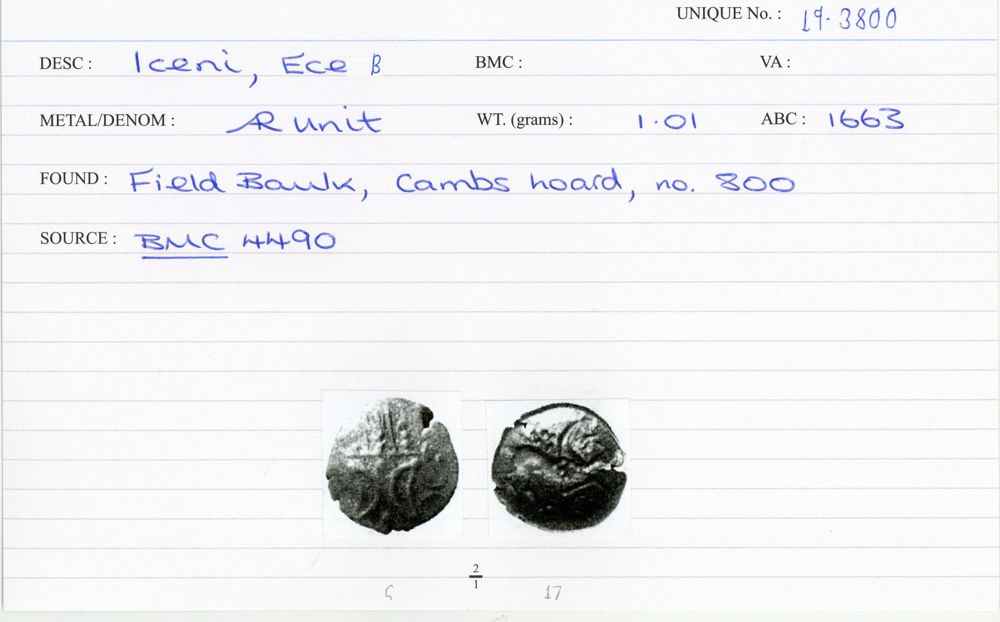 UNIQUE No. : 19-3800
DESC : Iceni, Ece B BMC : VA :
METAL/DENOM : AR unit WT. (grams) : 1.01 ABC : 1663
FOUND : Field Bawk, Cambs hoard, no. 800
SOURCE : BMC 4490
2
1
17